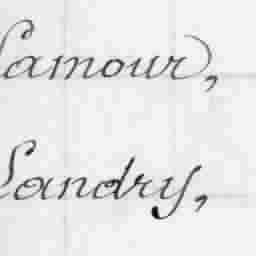 Lamour,
Landry,